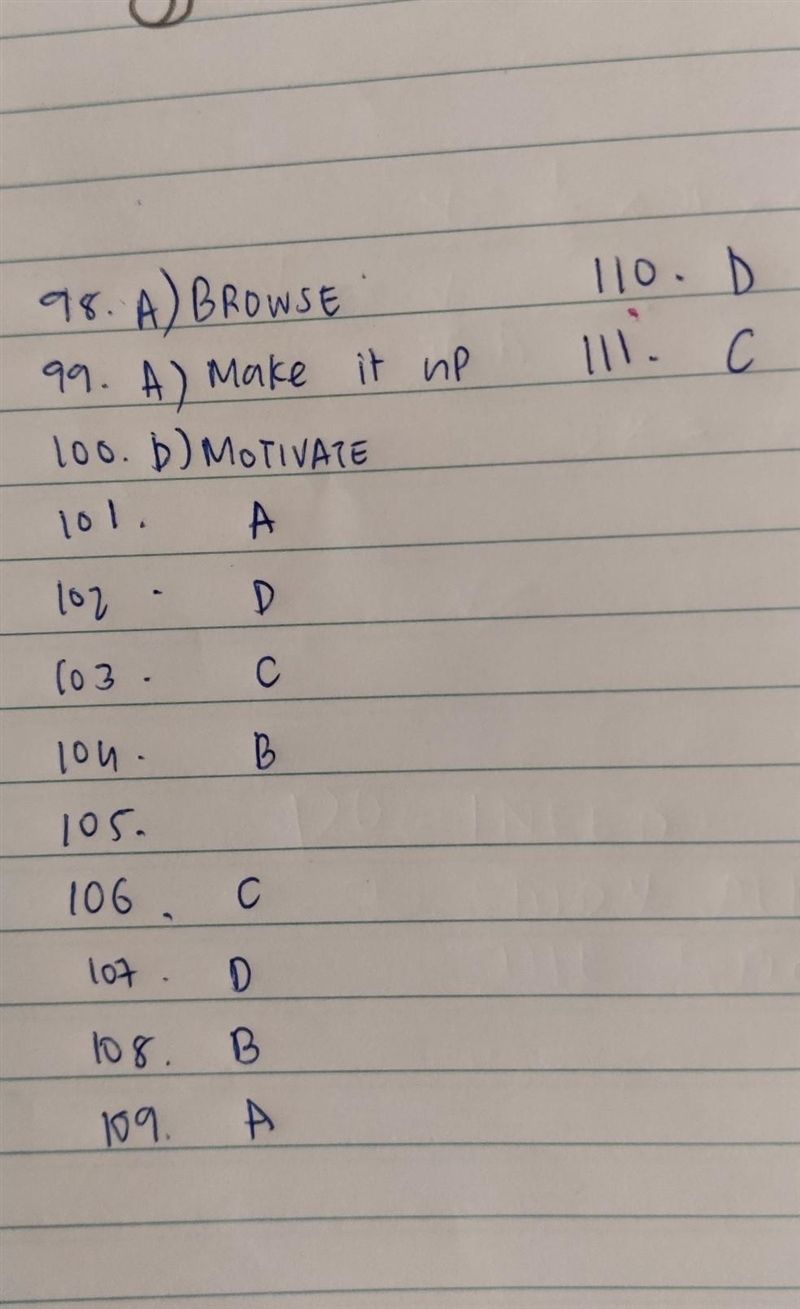 98. A) BROWSE
99. A) Make it up
100. D) MOTIVATE
101. A
102. D
103. C
104. B
105.
106. C
107. D
108. B
109. A
110. D
111. C